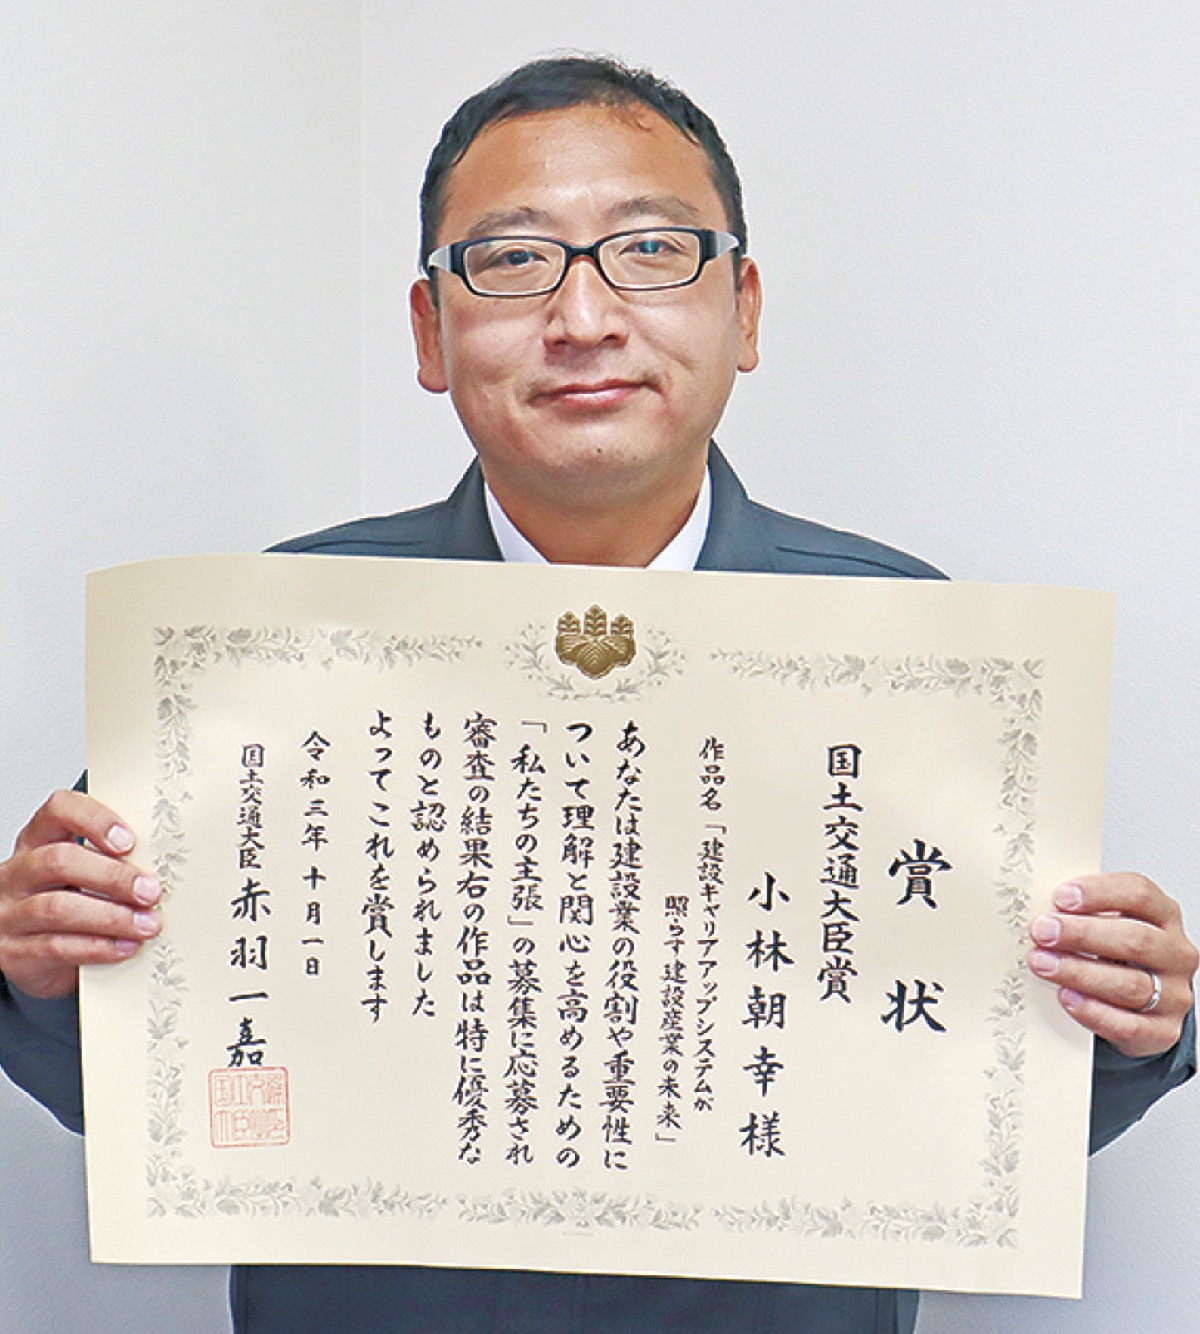 賞状
国土交通大臣賞
小林朝幸様
作品名「建設キャリアアップシステムが
照らす建設産業の未来」
あなたは建設業の役割や重要性に
ついて理解と関心を高めるための
「私たちの主張」の募集に応募され
審査の結果右の作品は特に優秀な
ものと認められました
よってこれを賞します
令和三年十月一日
国土交通大臣 赤羽一嘉